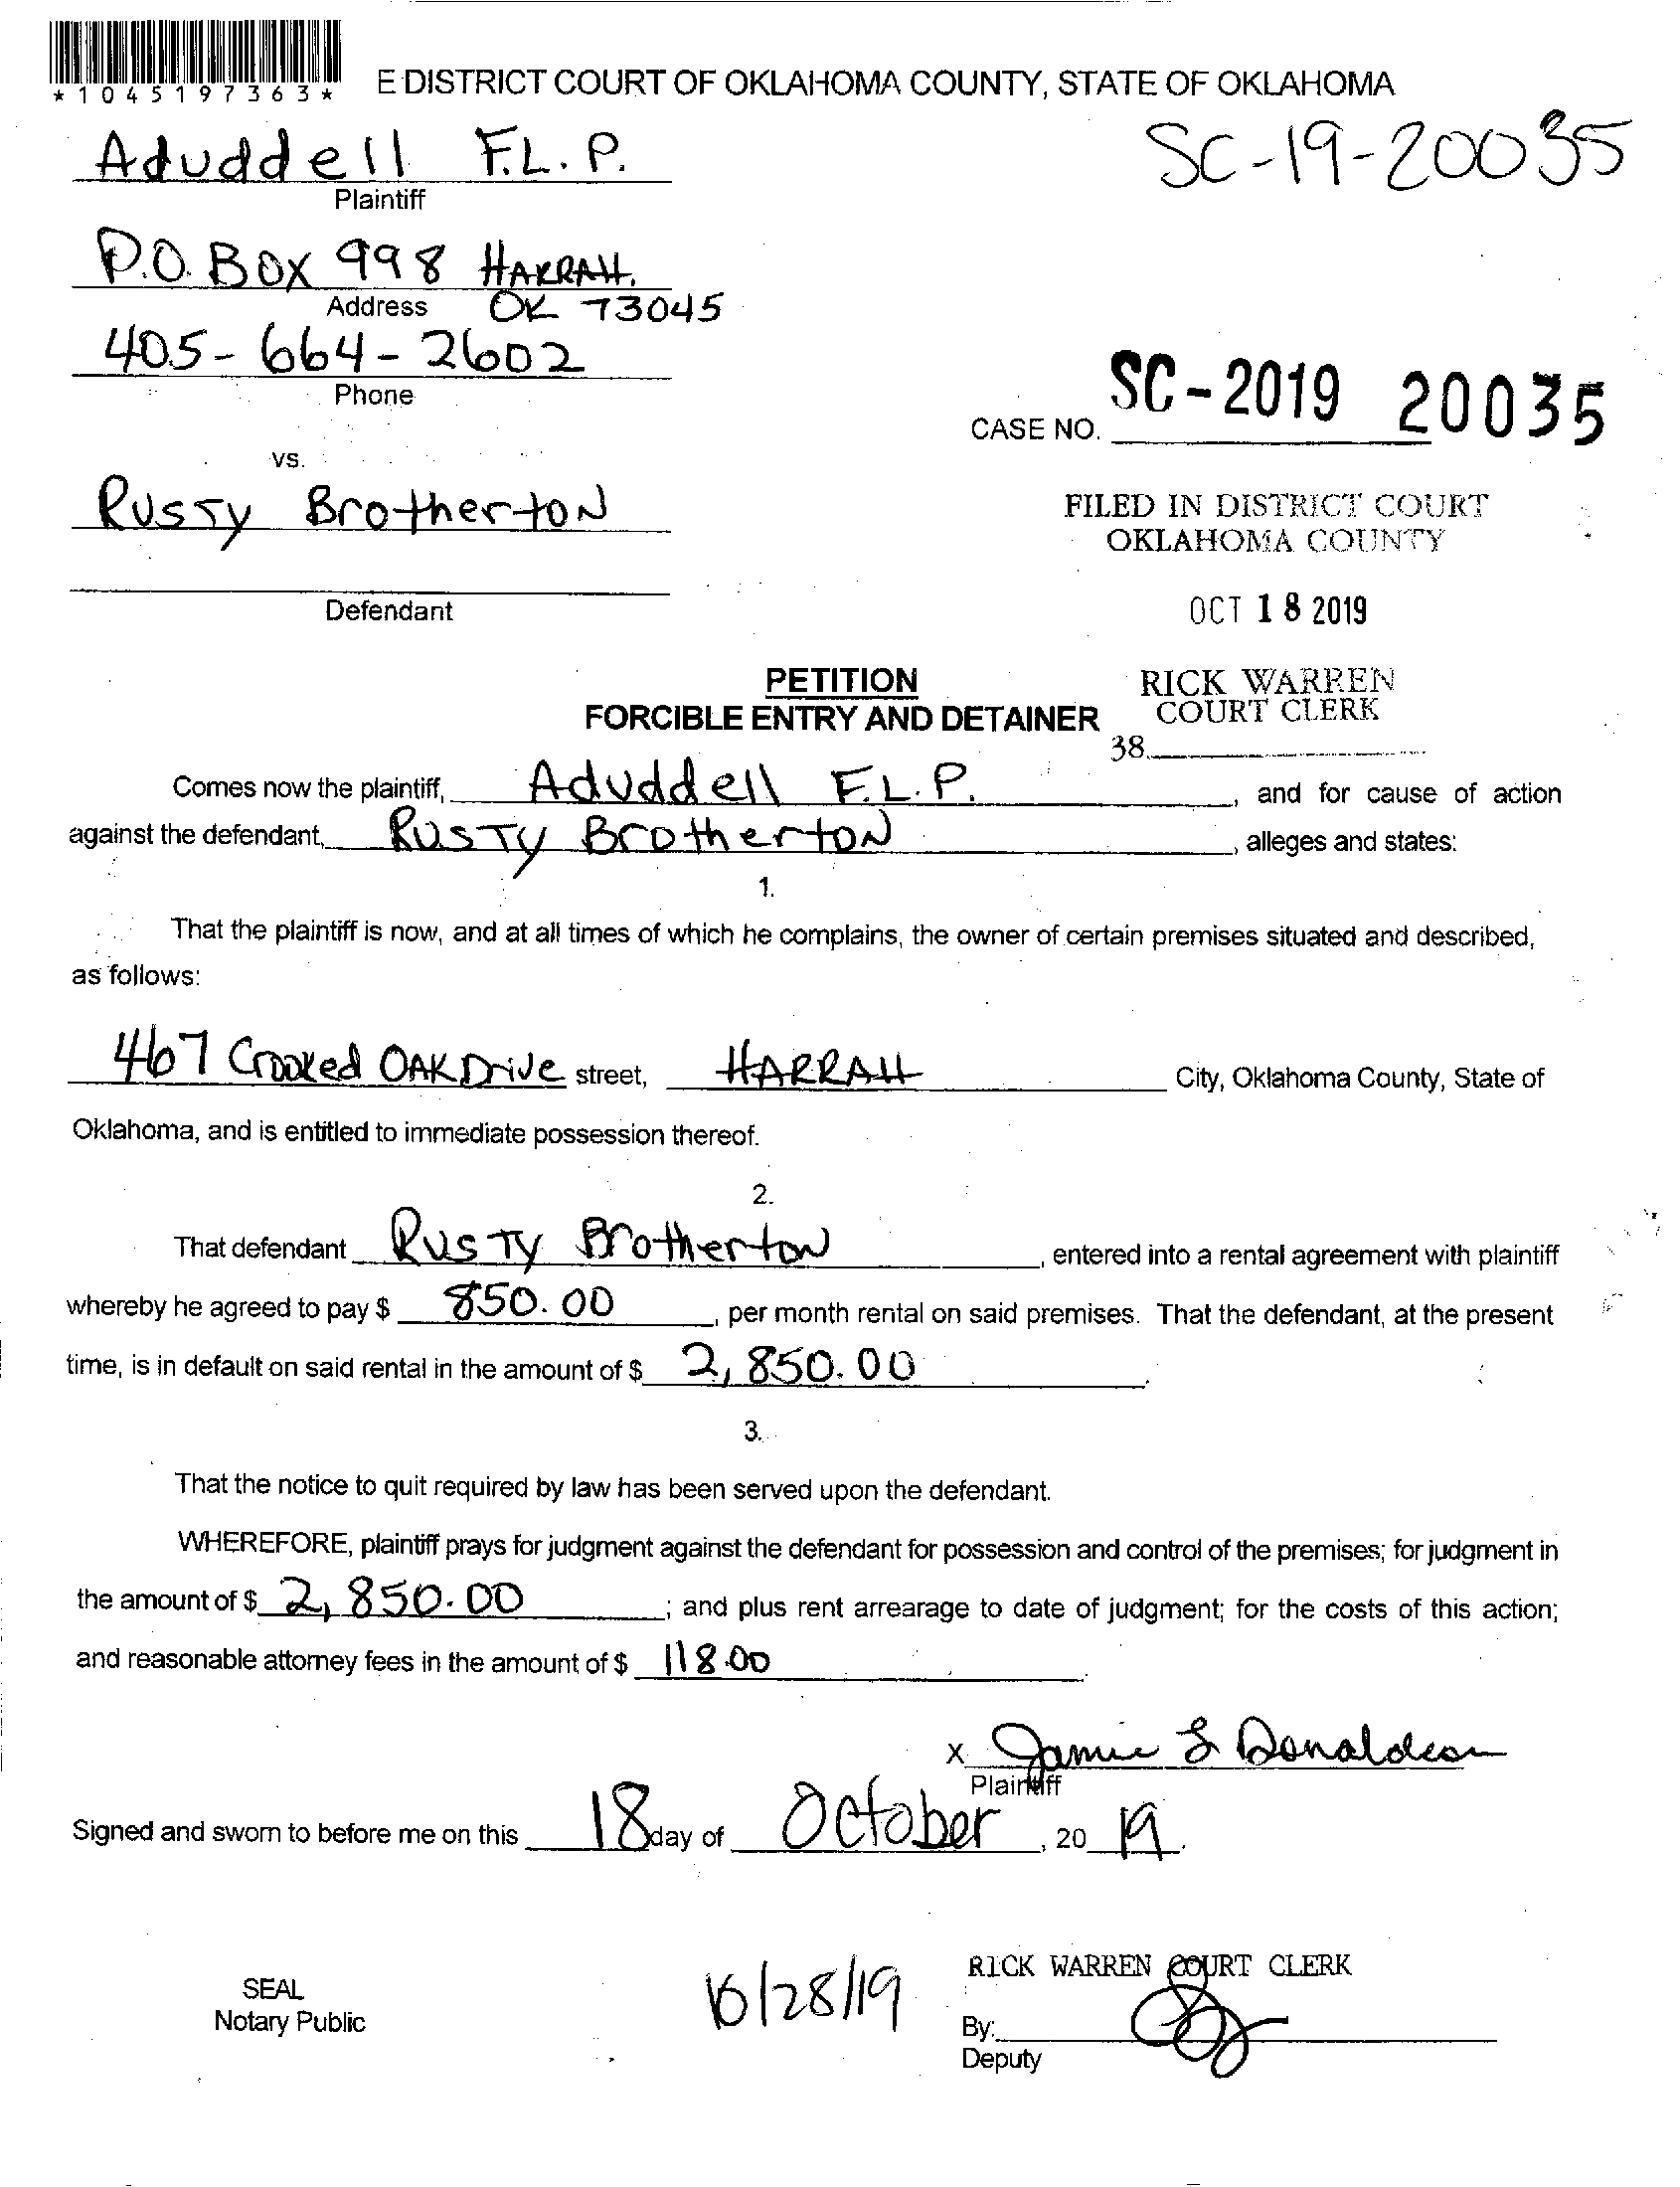 *1045197363*
E DISTRICT COURT OF OKLAHOMA COUNTY, STATE OF OKLAHOMA
Aduddell F.L.P.
SC-19-20035
Plaintiff
P.O. BOX 998 HARRAH,
Address OK 73045
405-664-2602
Phone
CASE NO. SC-2019 20035
vs.
Rusty Brotherton
FILED IN DISTRICT COURT
OKLAHOMA COUNTY
Defendant
OCT 18 2019
PETITION
RICK WARREN
FORCIBLE ENTRY AND DETAINER
COURT CLERK
38
Comes now the plaintiff, Aduddell F.L.P., and for cause of action
against the defendant, Rusty Brotherton, alleges and states:
1.
That the plaintiff is now, and at all times of which he complains, the owner of certain premises situated and described,
as follows:
467 Crooked OAK Drive street, HARRAH City, Oklahoma County, State of
Oklahoma, and is entitled to immediate possession thereof.
2.
That defendant Rusty Brotherton, entered into a rental agreement with plaintiff
whereby he agreed to pay $ 850.00, per month rental on said premises. That the defendant, at the present
time, is in default on said rental in the amount of $ 2,850.00.
3.
That the notice to quit required by law has been served upon the defendant.
WHEREFORE, plaintiff prays for judgment against the defendant for possession and control of the premises; for judgment in
the amount of $ 2,850.00; and plus rent arrearage to date of judgment; for the costs of this action;
and reasonable attorney fees in the amount of $ 118.00.
X Jamie L Donaldson
Plaintiff
Signed and sworn to before me on this 18 day of October, 2019.
RICK WARREN COURT CLERK
SEAL
10/28/19
Notary Public
By:
Deputy